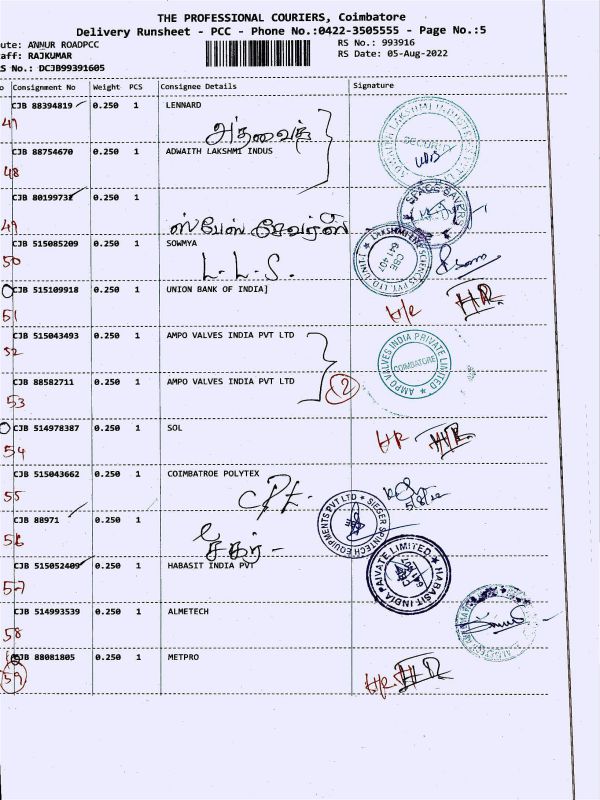 THE PROFESSIONAL COURIERS, Coimbatore
Delivery Runsheet - PCC - Phone No.:0422-3505555 - Page No.:5
ute: ANNUR ROADPCC RS No.: 993916
aff: RAJKUMAR RS Date: 05-Aug-2022
S No.: DCJB99391605
o Consignment No Weight PCS Consignee Details Signature
CJB 88394819 0.250 1 LENNARD
47
CJB 88754670 0.250 1 ADWAITH LAKSHMI INDUS
48
CJB 80199732 0.250 1
49
ஸ்பேஸ் சேவர்ஸ்
SPACE SAVERS
CJB 515085209 0.250 1 SOWMYA
50
L.L.S.
CBE 641 407
CJB 515109918 0.250 1 UNION BANK OF INDIA]
51
H/R HR
CJB 515043493 0.250 1 AMPO VALVES INDIA PVT LTD
52
AMPO VALVES INDIA PRIVATE LIMITED
COIMBATORE
CJB 88582711 0.250 1 AMPO VALVES INDIA PVT LTD
53
2
CJB 514978387 0.250 1 SOL
54
HR HR
CJB 515043662 0.250 1 COIMBATROE POLYTEX
55
5/8/22
CJB 88971 0.250 1
56
சேகர் -
SIEGER SPINTECH EQUIPMENTS PVT LTD
CJB 515052409 0.250 1 HABASIT INDIA PVT
57
HABASIT INDIA PAIVATE LIMITED
CJB 514993539 0.250 1 ALMETECH
58
CJB 88081805 0.250 1 METPRO
59
H/R HR